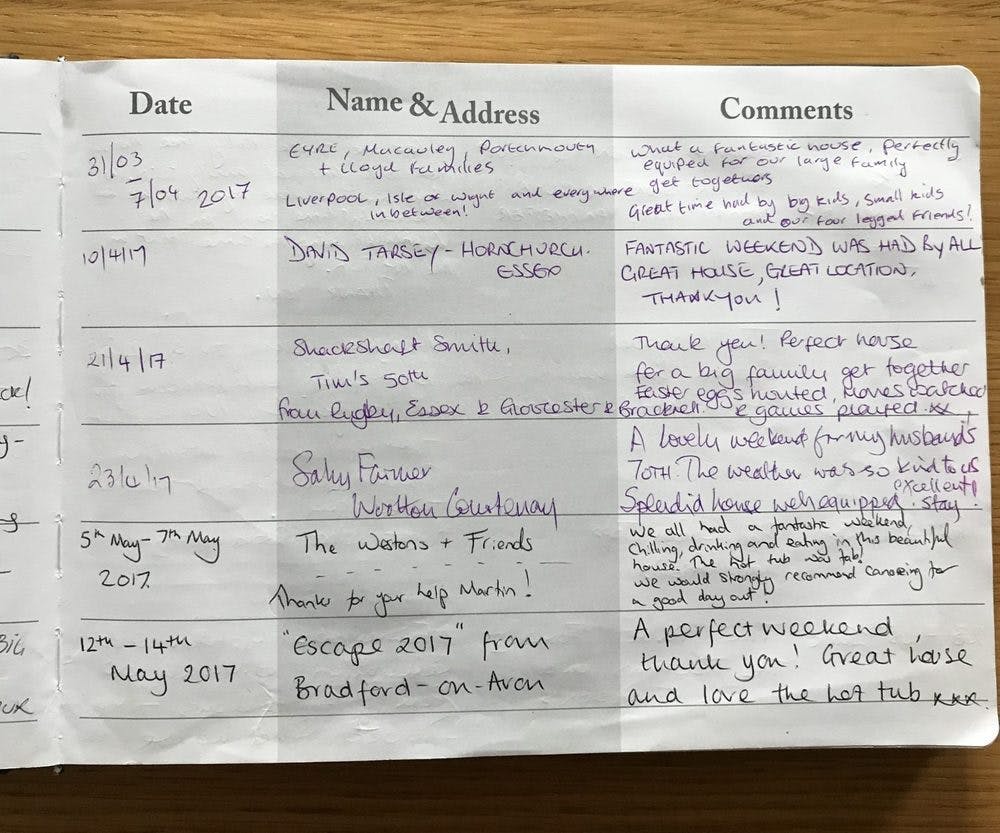 Date Name & Address Comments
31/03
7/04 2017
EYRE, Macauley, Portchmouth
+ Lloyd Families
Liverpool, Isle of Wight and everywhere
in between!
What a fantastic house, Perfectly
equiped for our large family
get togethers
Great time had by big kids, small kids
and our four legged friends!
10/4/17
DAVID TARSEY - HORNCHURCH.
ESSEX
FANTASTIC WEEKEND WAS HAD By ALL
GREAT HOUSE, GREAT LOCATION,
THANKYOU!
21/4/17
Shackshaft Smith,
Tim's 50th
from Rugby, Essex & Gloucester & Bracknell.
Thank you! Perfect house
for a big family get together
Easter eggs hunted, Movies watched
& games played xx
23/4/17
Sally Farmer
Wootton Courtenay
A lovely weekend for my husband's
70TH. The weather was so kind to us
Splendid house well equipped. excellent stay.
5th May - 7th May
2017.
The Westons + Friends
Thanks for your help Martin!
We all had a fantastic weekend,
chilling, drinking and eating in this beautiful
house! The hot tub was fab!
We would strongly recommend canoeing for
a good day out!
12th - 14th
May 2017
"Escape 2017" from
Bradford-on-Avon
A perfect weekend,
thank you! Great house
and love the hot tub xxx.